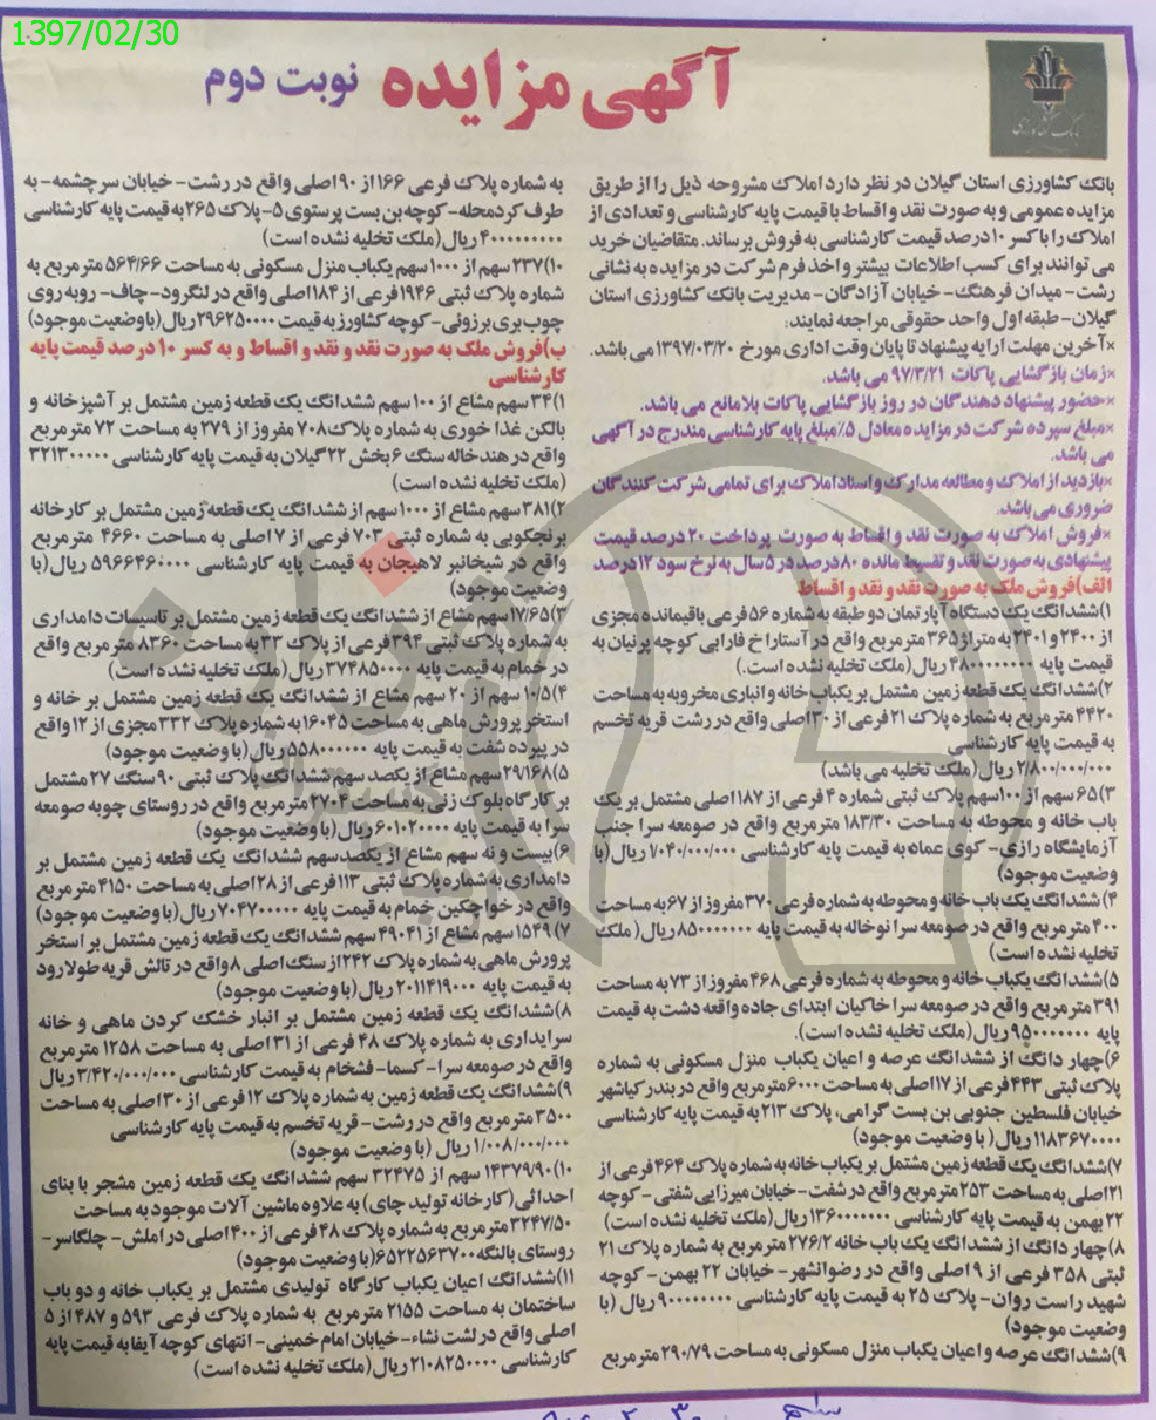 1397/02/30
آگهی مزایده نوبت دوم
بانک کشاورزی استان گیلان در نظر دارد املاک مشروحه ذیل را از طریق
مزایده عمومی و به صورت نقد و اقساط با قیمت پایه کارشناسی و تعدادی از
املاک را با کسر ۱۰ درصد قیمت کارشناسی به فروش برساند. متقاضیان خرید
می توانند برای کسب اطلاعات بیشتر و اخذ فرم شرکت در مزایده به نشانی
رشت- میدان فرهنگ- خیابان آزادگان- مدیریت بانک کشاورزی استان
گیلان- طبقه اول واحد حقوقی مراجعه نمایند:
×آخرین مهلت ارایه پیشنهاد تا پایان وقت اداری مورخ ۱۳۹۷/۰۳/۲۰ می باشد.
×زمان بازگشایی پاکات ۹۷/۳/۲۱ می باشد.
×حضور پیشنهاد دهندگان در روز بازگشایی پاکات بلامانع می باشد.
×مبلغ سپرده شرکت در مزایده معادل ۵٪مبلغ پایه کارشناسی مندرج در آگهی
می باشد.
×بازدید از املاک و مطالعه مدارک و اسناد املاک برای تمامی شرکت کنندگان
ضروری می باشد.
×فروش املاک به صورت نقد و اقساط به صورت پرداخت ۲۰ درصد قیمت
پیشنهادی به صورت نقد و تقسیط مانده ۸۰درصد در ۵سال به نرخ سود ۱۲درصد
الف)فروش ملک به صورت نقد و نقد و اقساط
۱)ششدانگ یک دستگاه آپارتمان دو طبقه به شماره ۵۶فرعی باقیمانده مجزی
از ۲۴۰۰و۲۴۰۱ به متراژ ۳۶۵ مترمربع واقع در آستارا خ فارابی کوچه پرنیان به
قیمت پایه ۴۸۰۰۰۰۰۰۰۰ریال(ملک تخلیه نشده است.)
۲)ششدانگ یک قطعه زمین مشتمل بر یکباب خانه و انباری مخروبه به مساحت
۴۴۲۰ مترمربع به شماره پلاک ۲۱فرعی از ۳۰اصلی واقع در رشت قریه تخسم
به قیمت پایه کارشناسی
۲/۸۰۰/۰۰۰/۰۰۰ ریال(ملک تخلیه می باشد)
۳)۶۵ سهم از ۱۰۰سهم پلاک ثبتی شماره ۴ فرعی از ۱۸۷اصلی مشتمل بر یک
باب خانه و محوطه به مساحت ۱۸۳/۳۰ مترمربع واقع در صومعه سرا جنب
آزمایشگاه رازی- کوی عماد به قیمت پایه کارشناسی ۷۰۴۰/۰۰۰/۰۰۰ ریال(با
وضعیت موجود)
۴)ششدانگ یک باب خانه و محوطه به شماره فرعی ۳۷۰مفروز از ۶۷به مساحت
۴۰۰مترمربع واقع در صومعه سرا نوخاله به قیمت پایه ۸۵۰۰۰۰۰۰۰ریال(ملک
تخلیه نشده است)
۵)ششدانگ یکباب خانه و محوطه به شماره فرعی ۴۶۸ مفروز از ۷۳ به مساحت
۳۹۱مترمربع واقع در صومعه سرا خاکیان ابتدای جاده واقعه دشت به قیمت
پایه ۹۵۰۰۰۰۰۰۰ریال(ملک تخلیه نشده است).
۶)چهار دانگ از ششدانگ عرصه و اعیان یکباب منزل مسکونی به شماره
پلاک ثبتی ۴۴۳فرعی از ۱۷اصلی به مساحت ۶۰۰۰مترمربع واقع در بندر کیاشهر
خیابان فلسطین جنوبی بن بست گرامی، پلاک ۲۱۳به قیمت پایه کارشناسی
۱۱۸۳۶۷۰۰۰۰ریال( با وضعیت موجود)
۷)ششدانگ یک قطعه زمین مشتمل بر یکباب خانه به شماره پلاک ۴۶۴فرعی از
۲۱اصلی به مساحت ۲۵۳ مترمربع واقع در شفت- خیابان میرزایی شفتی- کوچه
۲۲بهمن به قیمت پایه کارشناسی ۱۳۶۰۰۰۰۰۰۰ریال(ملک تخلیه نشده است)
۸)چهار دانگ از ششدانگ یک باب خانه ۲۷۶/۲ مترمربع به شماره پلاک ۲۱
ثبتی ۳۵۸ فرعی از ۹اصلی واقع در رضوانشهر- خیابان ۲۲ بهمن- کوچه
شهید راست روان- پلاک ۲۵ به قیمت پایه کارشناسی ۹۰۰۰۰۰۰۰۰ریال (با
وضعیت موجود)
۹)ششدانگ عرصه و اعیان یکباب منزل مسکونی به مساحت ۲۹۰/۷۹مترمربع
به شماره پلاک فرعی ۱۶۶از ۹۰اصلی واقع در رشت- خیابان سرچشمه- به
طرف کردمحله- کوچه بن بست پرستوی ۵- پلاک ۲۶۵به قیمت پایه کارشناسی
۴۰۰۰۰۰۰۰۰۰ ریال(ملک تخلیه نشده است)
۱۰)۲۳۷سهم از ۱۰۰۰ سهم یکباب منزل مسکونی به مساحت ۵۶۴/۶۶ مترمربع به
شماره پلاک ثبتی ۱۹۴۶فرعی از ۱۸۴اصلی واقع در لنگرود-چاف- روبه روی
چوب بری برزونی- کوچه کشاورز به قیمت ۲۹۶۲۵۰۰۰۰ریال(باوضعیت موجود)
ب)فروش ملک به صورت نقد و نقد و اقساط و به کسر ۱۰ درصد قیمت پایه
کارشناسی
۱)۳۴ سهم مشاع از ۱۰۰ سهم ششدانگ یک قطعه زمین مشتمل بر آشپزخانه و
بالکن غذا خوری به شماره پلاک۷۰۸ مفروز از ۲۷۹ به مساحت ۷۲ مترمربع
واقع در هندخاله سنگ ۶ بخش ۲۲گیلان به قیمت پایه کارشناسی ۳۲۱۳۰۰۰۰۰
(ملک تخلیه نشده است)
۲)۳۸۱سهم مشاع از ۱۰۰۰ سهم از ششدانگ یک قطعه زمین مشتمل بر کارخانه
برنجکوبی به شماره ثبتی ۷۰۳ فرعی از ۷اصلی به مساحت ۴۶۶۰ مترمربع
واقع در شیخانبر لاهیجان به قیمت پایه کارشناسی ۵۹۶۶۴۶۰۰۰۰ ریال(با
وضعیت موجود)
۳)۱۷/۶۵سهم مشاع از ششدانگ یک قطعه زمین مشتمل بر تاسیسات دامداری
به شماره پلاک ثبتی ۳۹۴فرعی از پلاک ۳۳به مساحت ۸۳۶۰ مترمربع واقع
در خمام به قیمت پایه ۳۷۴۸۵۰۰۰۰ریال(ملک تخلیه نشده است)
۴)۱۰/۵ سهم از ۲۰ سهم مشاع از ششدانگ یک قطعه زمین مشتمل بر خانه و
استخر پرورش ماهی به مساحت ۱۶۰۴۵به شماره پلاک ۳۳۲ مجزی از ۱۲ واقع
در پیرده شفت به قیمت پایه ۵۵۸۰۰۰۰۰۰ریال(با وضعیت موجود)
۵)۲۹/۱۶۸سهم مشاع از یکصد سهم ششدانگ پلاک ثبتی ۹۰ سنگ ۲۷مشتمل
بر کارگاه بلوک زنی به مساحت ۲۷۰۴ مترمربع واقع در روستای چوبه صومعه
سرا به قیمت پایه ۶۰۱۰۲۰۰۰۰ریال(با وضعیت موجود)
۶)بیست و نه سهم مشاع از یکصدسهم ششدانگ یک قطعه زمین مشتمل بر
دامداری به شماره پلاک ثبتی ۱۱۳فرعی از ۲۸اصلی به مساحت ۴۱۵۰مترمربع
واقع در خواچکین خمام به قیمت پایه ۷۰۴۷۰۰۰۰۰ریال(با وضعیت موجود)
۷)۱۵۴۹سهم مشاع از ۴۹۰۴۱ سهم ششدانگ یک قطعه زمین مشتمل بر استخر
پرورش ماهی به شماره پلاک ۲۴۲از سنگ اصلی ۸واقع در تالش قریه طولارود
به قیمت پایه ۲۰۱۱۴۱۹۰۰۰ریال(با وضعیت موجود)
۸)ششدانگ یک قطعه زمین مشتمل بر انبار خشک کردن ماهی و خانه
سرایداری به شماره پلاک ۴۸ فرعی از ۳۱اصلی به مساحت ۱۲۵۸ مترمربع
واقع در صومعه سرا- کسما- فشخام به قیمت کارشناسی ۳/۴۲۰/۰۰۰/۰۰۰ریال
۹)ششدانگ یک قطعه زمین به شماره پلاک ۱۲فرعی از ۳۰اصلی به مساحت
۳۵۰۰مترمربع واقع در رشت- قریه تخسم به قیمت پایه کارشناسی
۱/۰۰۸/۰۰۰/۰۰۰ریال (با وضعیت موجود)
۱۰)۱۴۳۷۹/۹۰ سهم از ۳۲۴۷۵ سهم ششدانگ یک قطعه زمین مشجر با بنای
احداثی(کارخانه تولید چای) به علاوه ماشین آلات موجود به مساحت
۳۲۴۷/۵۰مترمربع به شماره پلاک ۴۸فرعی از ۴۰۰اصلی در املش- چلگاسر-
روستای بالنگه ۶۵۲۲۵۶۳۷۰۰(با وضعیت موجود)
۱۱)ششدانگ اعیان یکباب کارگاه تولیدی مشتمل بر یکباب خانه و دو باب
ساختمان به مساحت ۲۱۵۵ مترمربع به شماره پلاک فرعی ۵۹۳ و ۴۸۷ از ۵
اصلی واقع در لشت نشاء- خیابان امام خمینی- انتهای کوچه آیفا به قیمت پایه
کارشناسی ۲۱۰۸۲۵۰۰۰۰ریال(ملک تخلیه نشده است)